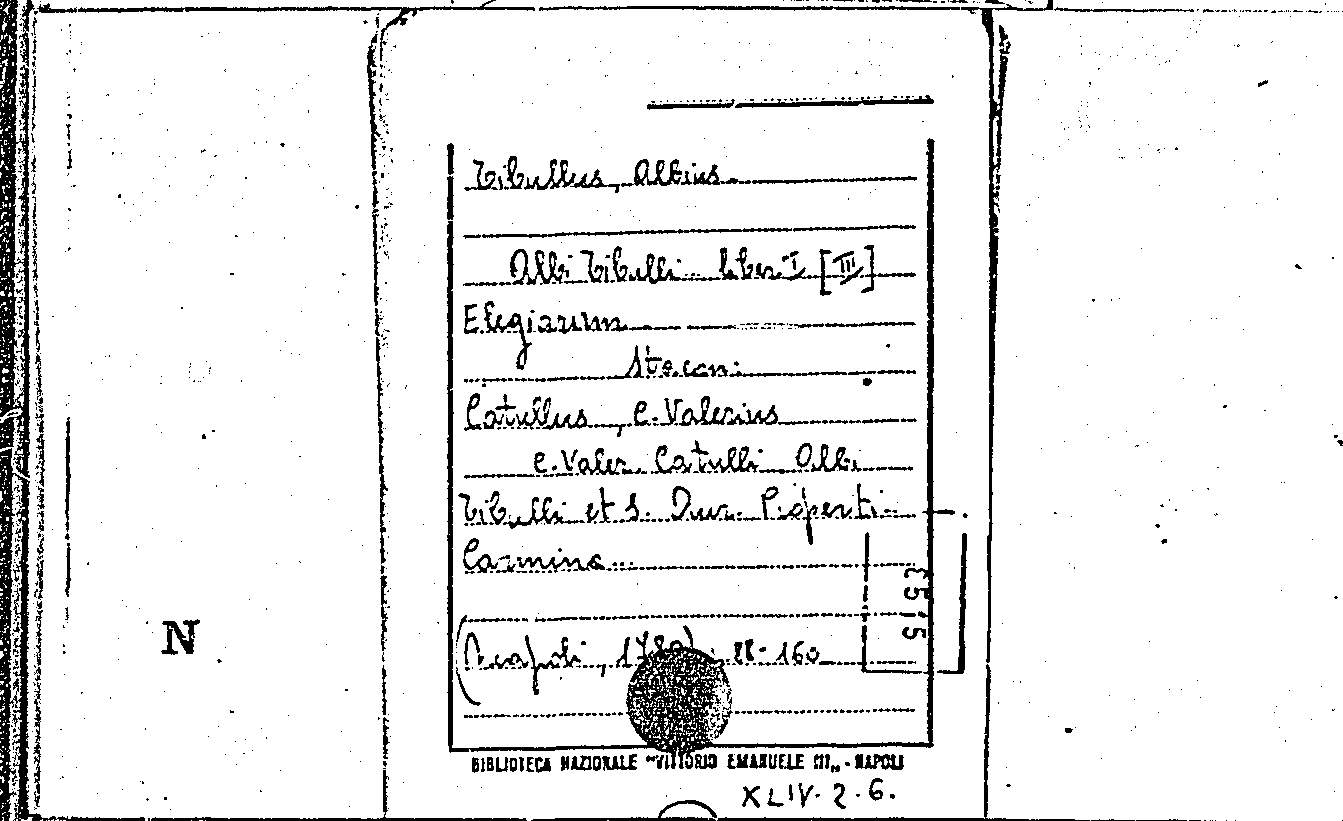 Tibullus, Albius.
Albi Tibulli... liber I [III]
Elegiarum
Sta con:
Catullus, C. Valerius
C. Valer. Catulli Albi
Tibulli et S. Aur. Properti
Carmina...
(Neapoli, 1780), 88-160
N
5515
BIBLIOTECA NAZIONALE "VITTORIO EMANUELE III„ - NAPOLI
XLIV. 2. 6.